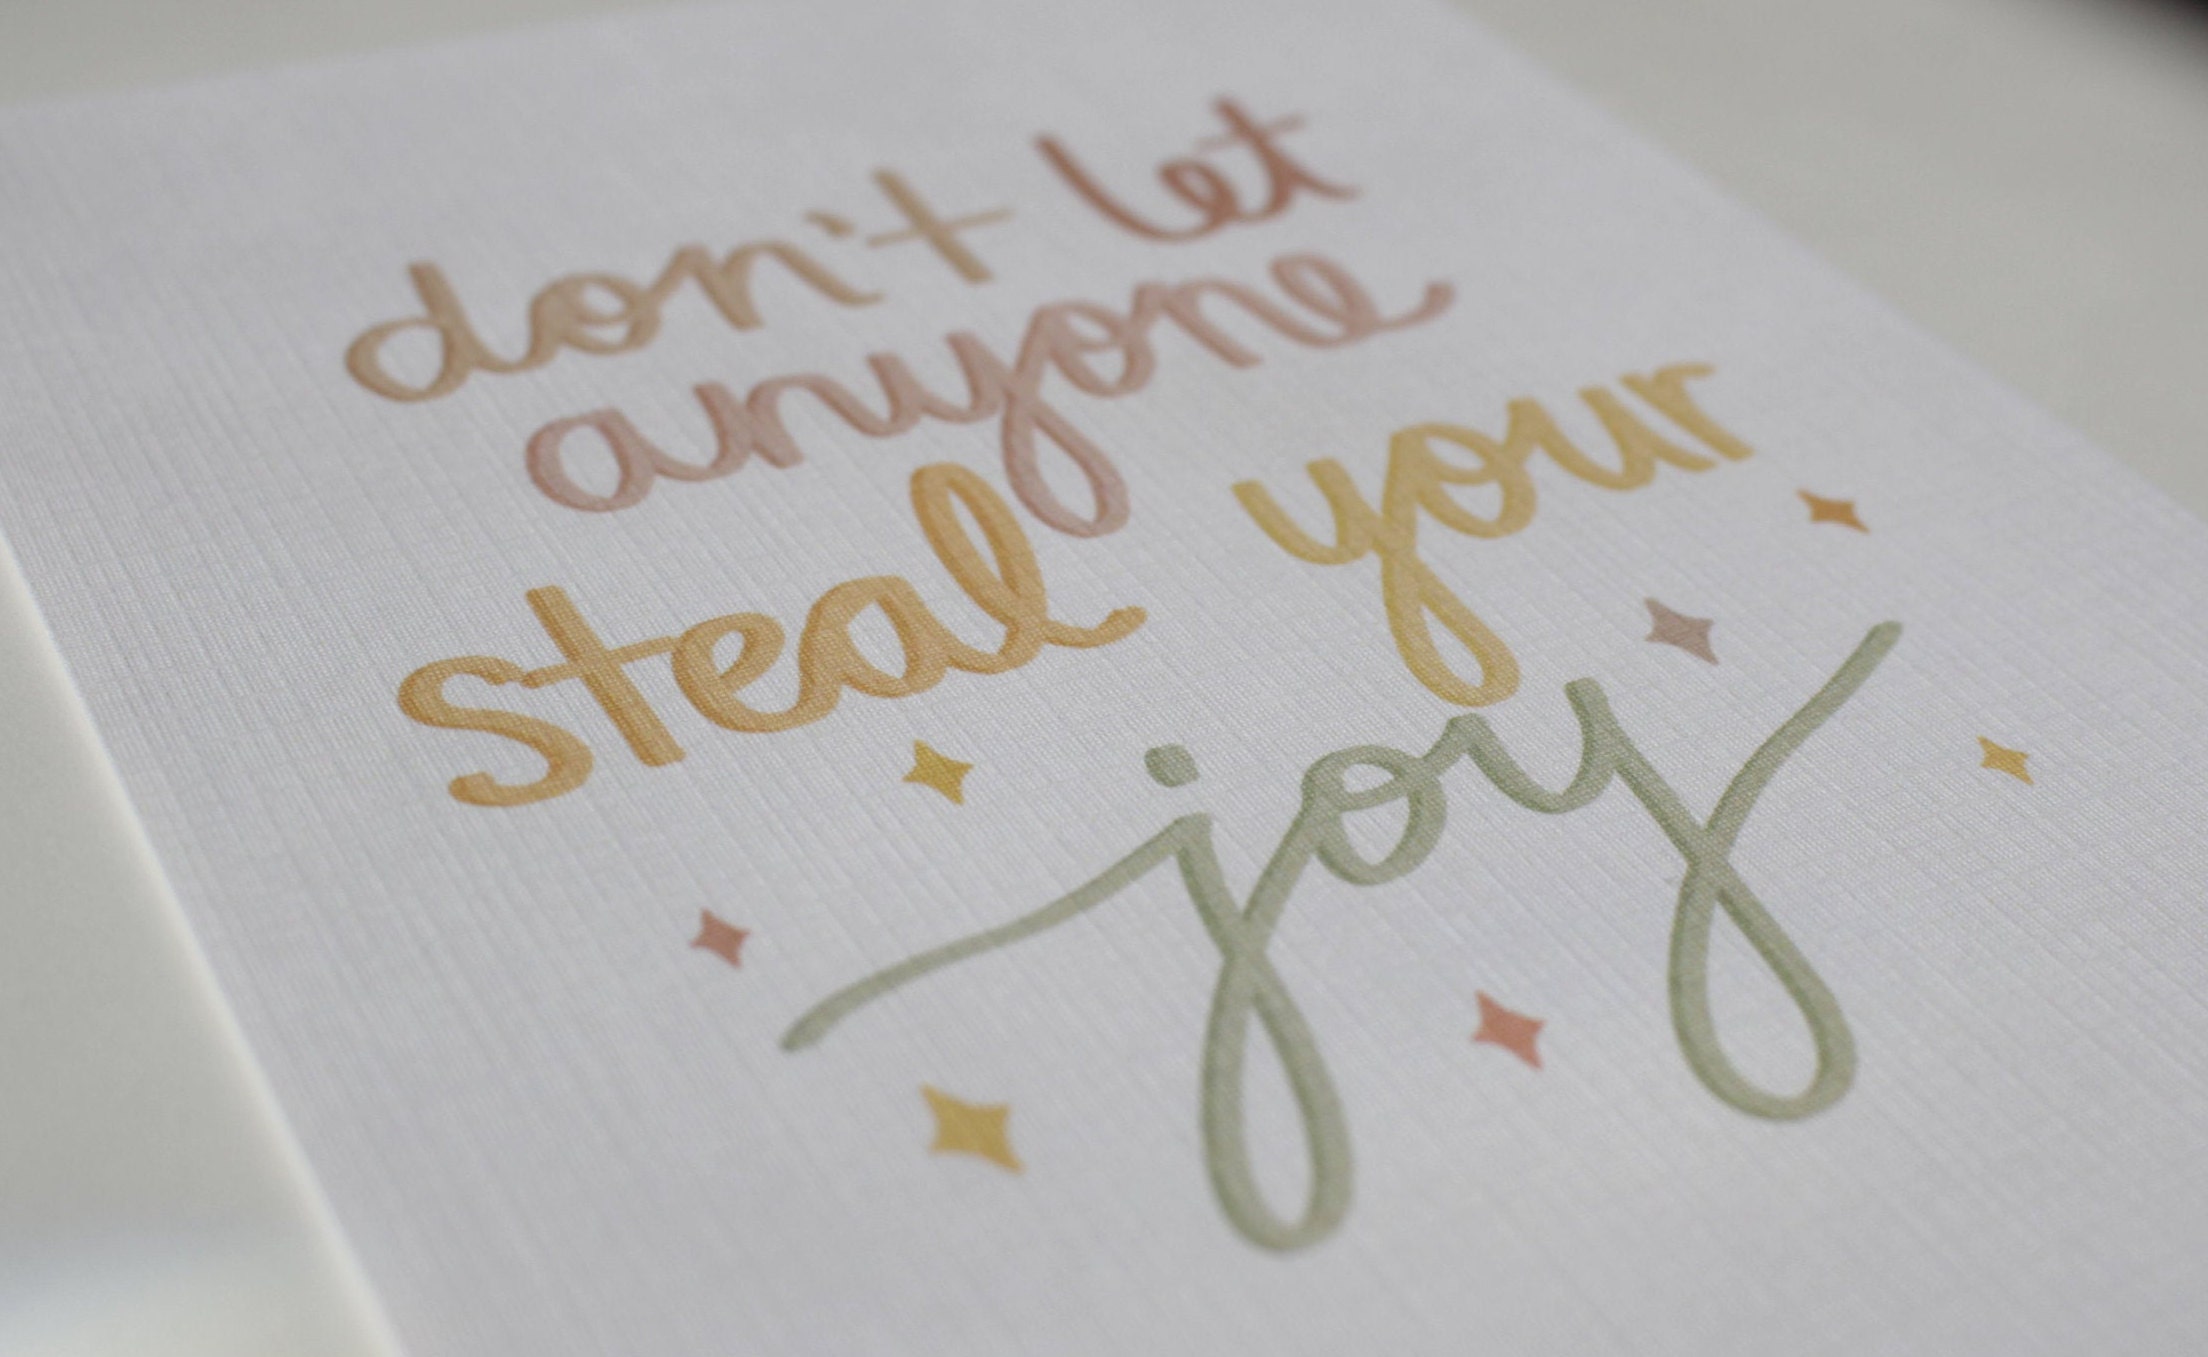 don't let
anyone
steal your
joy